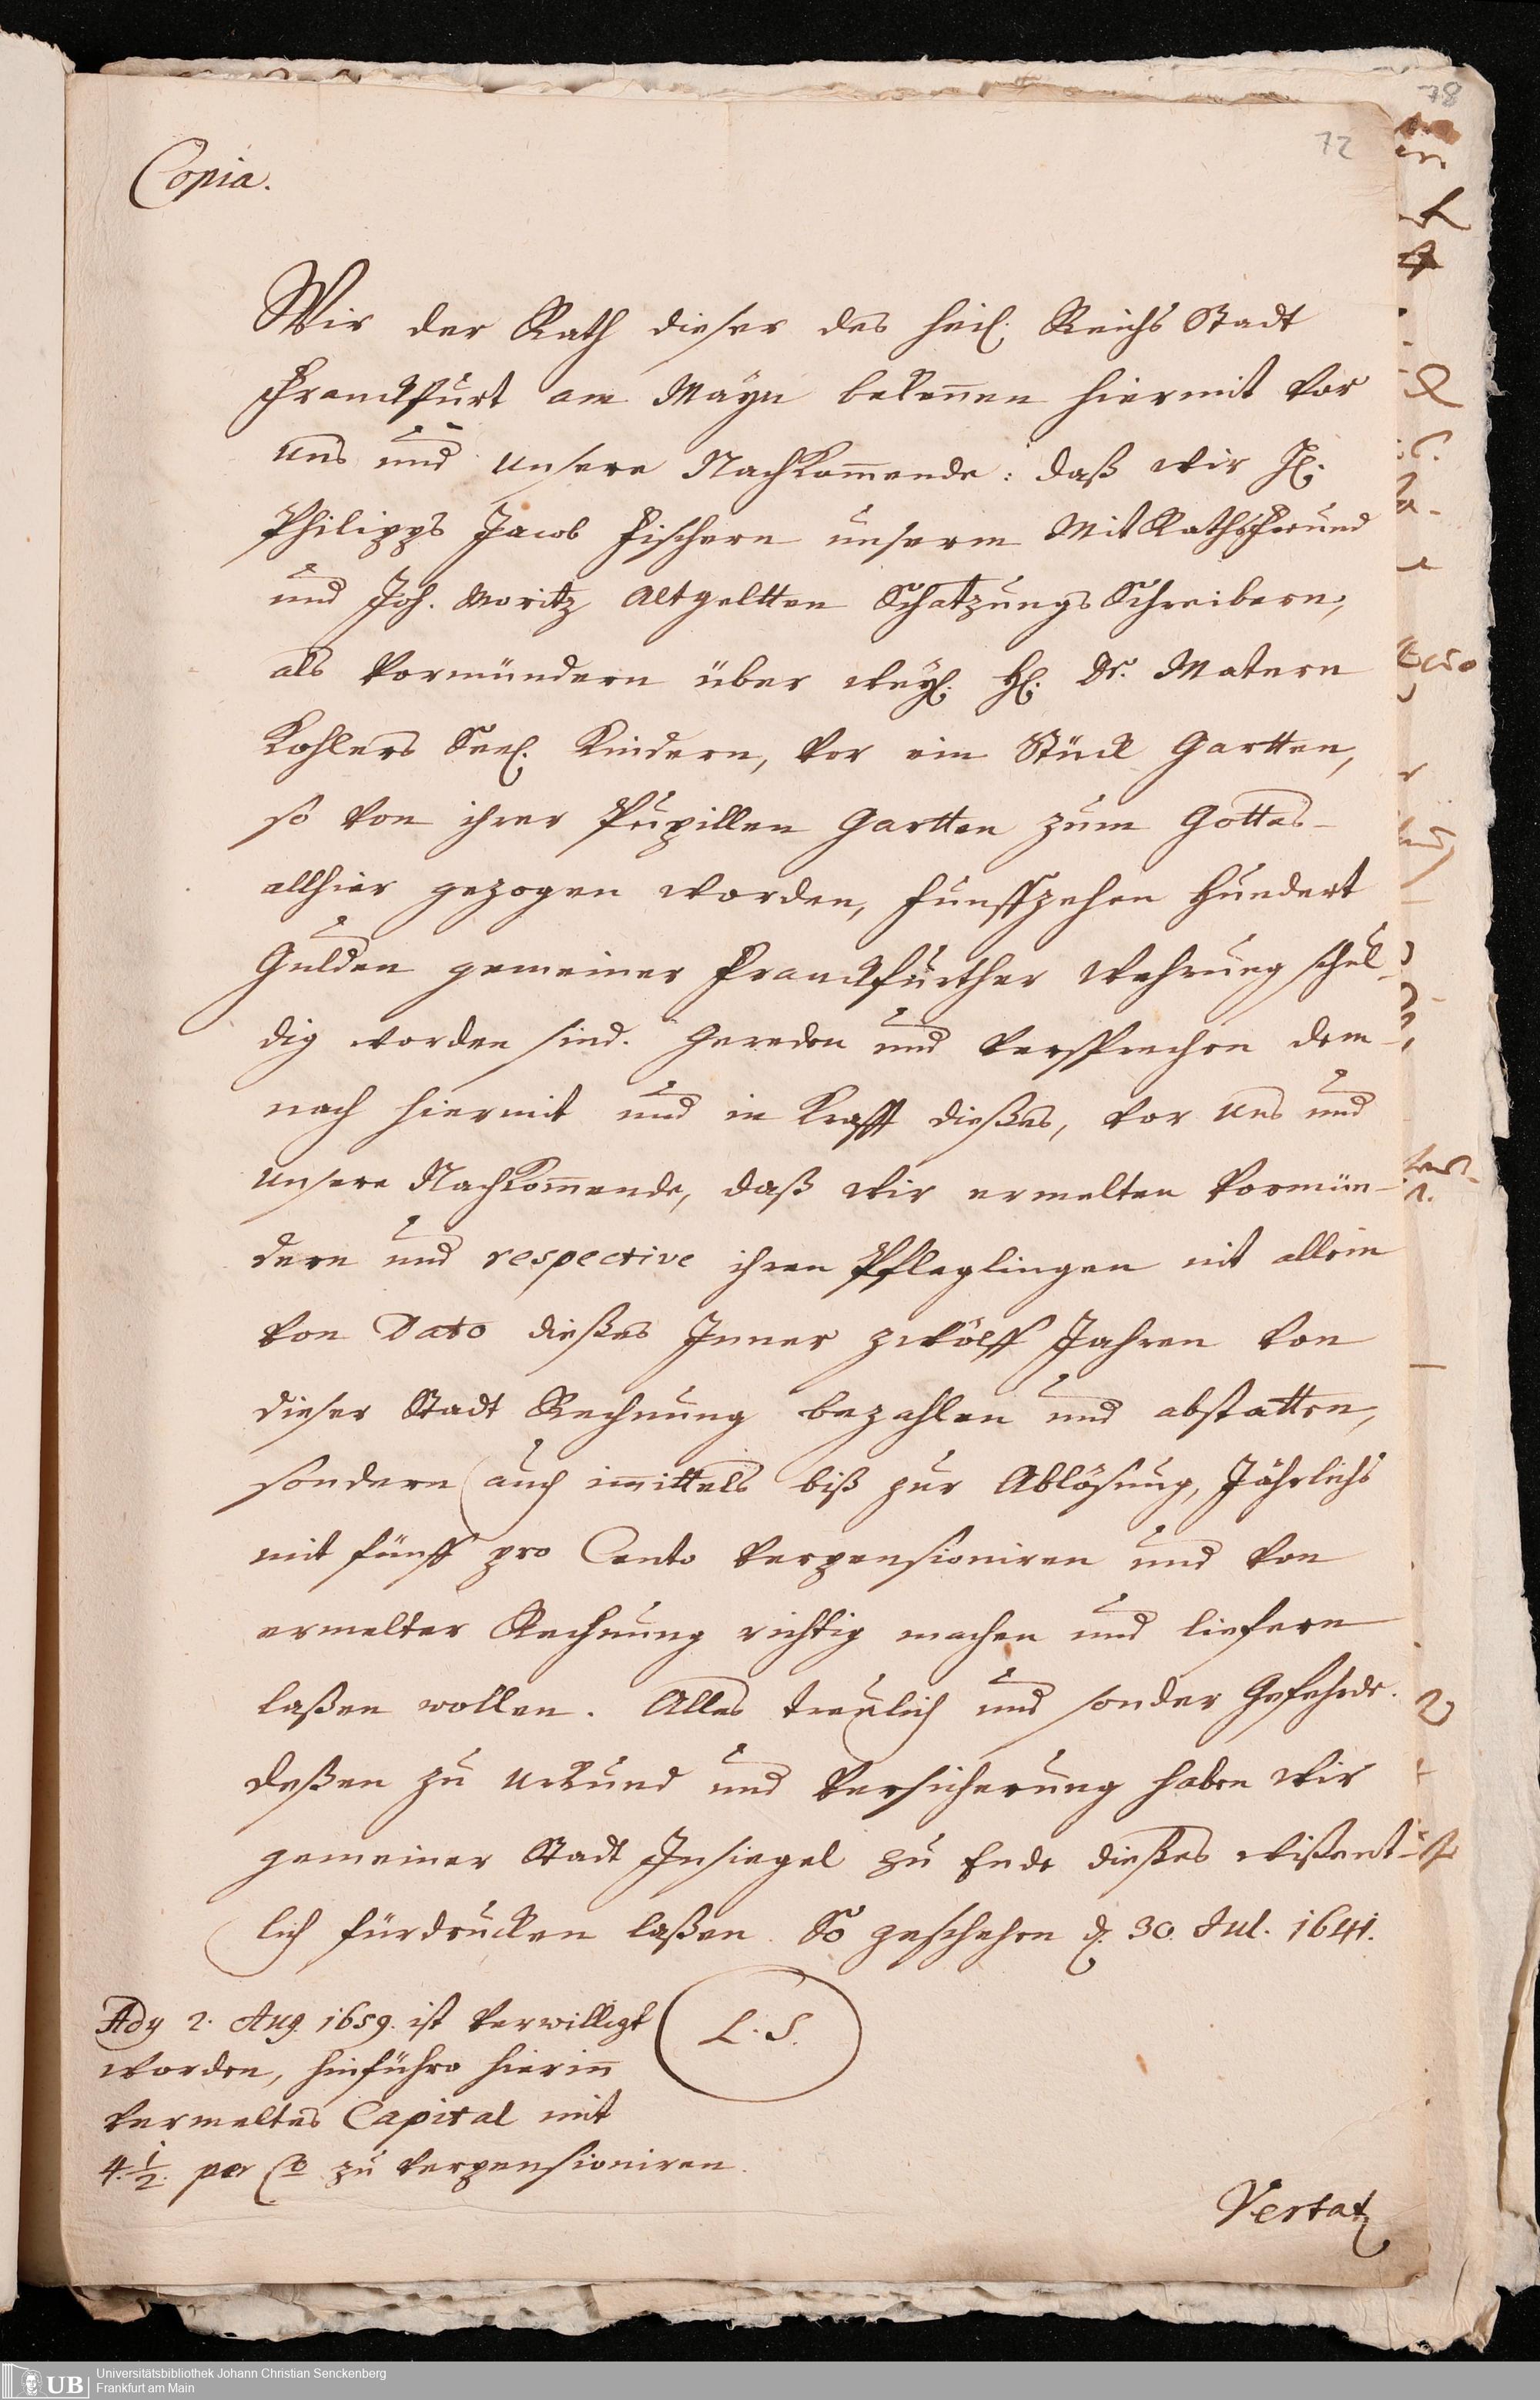 78
72
Copia.
Wir der Rath dieser des heil. Reichs Stadt
Franckfurt am Mäyn bekennen hiermit vor
uns und unsere Nachkom̄ende: daß wir H.
Philipps Jacob Fischern unserm MitRathsfreund
und Joh. Moritz Altgeltten SchatzungsSchreibern,
als Vormündern über weyl. H. Dr. Matern
Kohlers Seel. Kindern, vor ein Stück Gartten,
so von ihrer Pupillen Gartten zum Gottes-
allhier gezogen worden, funffzehen Hundert
Gulden gemeiner Franckfurther Wehrung schul-
dig worden sind. Gereden und versprechen dem-
nach hiermit und in Krafft dießes, vor uns und
unsere Nachkom̄ende, daß wir ermelten Vormün-
dern und respective ihren Pfleglingen nit allein
von Dato dießes Inner zwölff Jahren von
dieser Stadt Rechnung bezahlen und abstatten,
sondern auch im̄ittels biß zur Ablösung, Jährlichs
mit fünff pro Cento verpensioniren und von
ermelter Rechnung richtig machen und liefern
laßen wollen. Alles treulich und sonder Gefehrde.
deßen zu Urkund und Versicherung haben wir
gemeiner Stadt Insiegel zu Ende dießes wißent-
lich fürdrucken laßen. So geschehen d. 30. Jul. 1641.
Ady 2. Aug. 1659. ist verwilligt
worden, hinführo hierin̄
vermeltes Capital mit
4. 1/2. per Co zu verpensioniren.
L. S.
Vertatz
UB Universitätsbibliothek Johann Christian Senckenberg
Frankfurt am Main